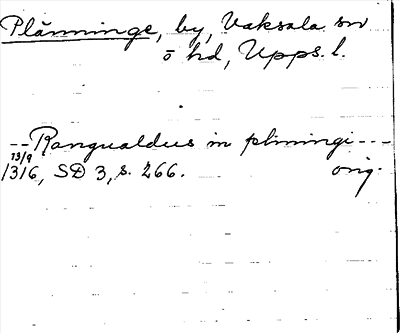 Plänninge, by, Vaksala sn
ö hd, Upps. l.
-- Rangualdus in pliningi ---
13/9
1316, SD 3, s. 266. orig.